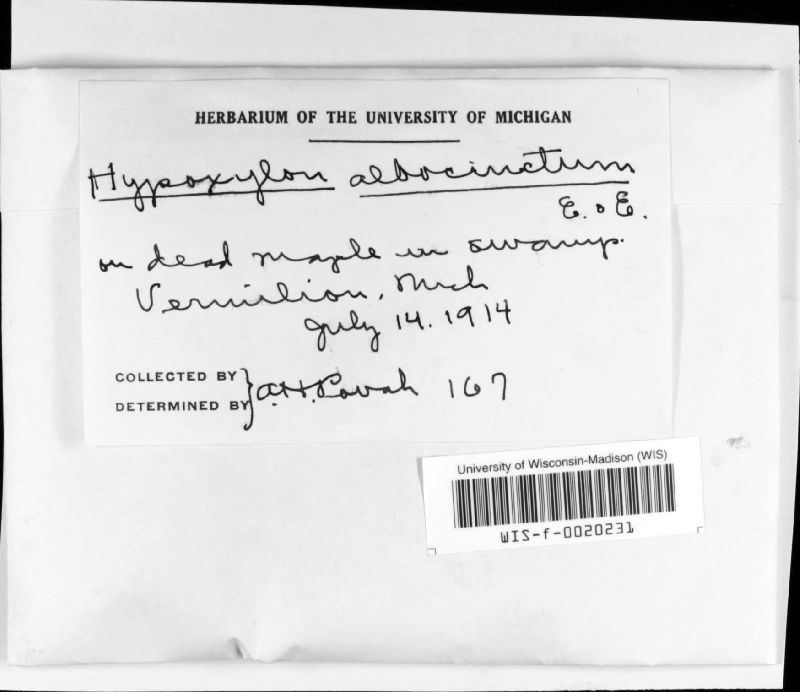 HERBARIUM OF THE UNIVERSITY OF MICHIGAN
Hypoxylon albocinctum
E. & E.
on dead maple in swamp.
Vermilion, Mich
July 14. 1914
COLLECTED BY
DETERMINED BY } A.H. Povah 167
University of Wisconsin-Madison (WIS)
WIS-f-0020231